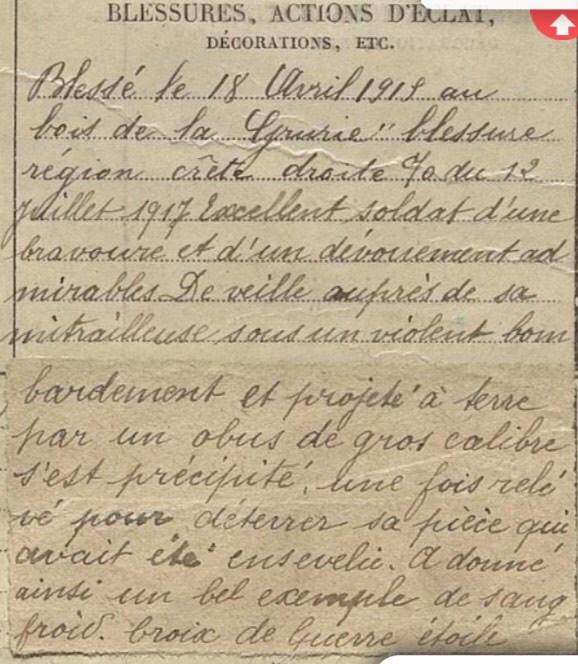 BLESSURES, ACTIONS D'ÉCLAT,
DÉCORATIONS, ETC.
Blessé le 18 Avril 1915 au
bois de la Grurie" blessure
région crête droite % du 12
juillet 1917 Excellent soldat d'une
bravoure et d'un dévouement ad
mirables De veille auprès de sa
mitrailleuse sous un violent bom
bardement et projeté à terre
par un obus de gros calibre
s'est précipité, une fois rele
vé pour déterrer sa pièce qui
avait été ensevelie. A donné
ainsi un bel exemple de sang
froid. Croix de Guerre étoile